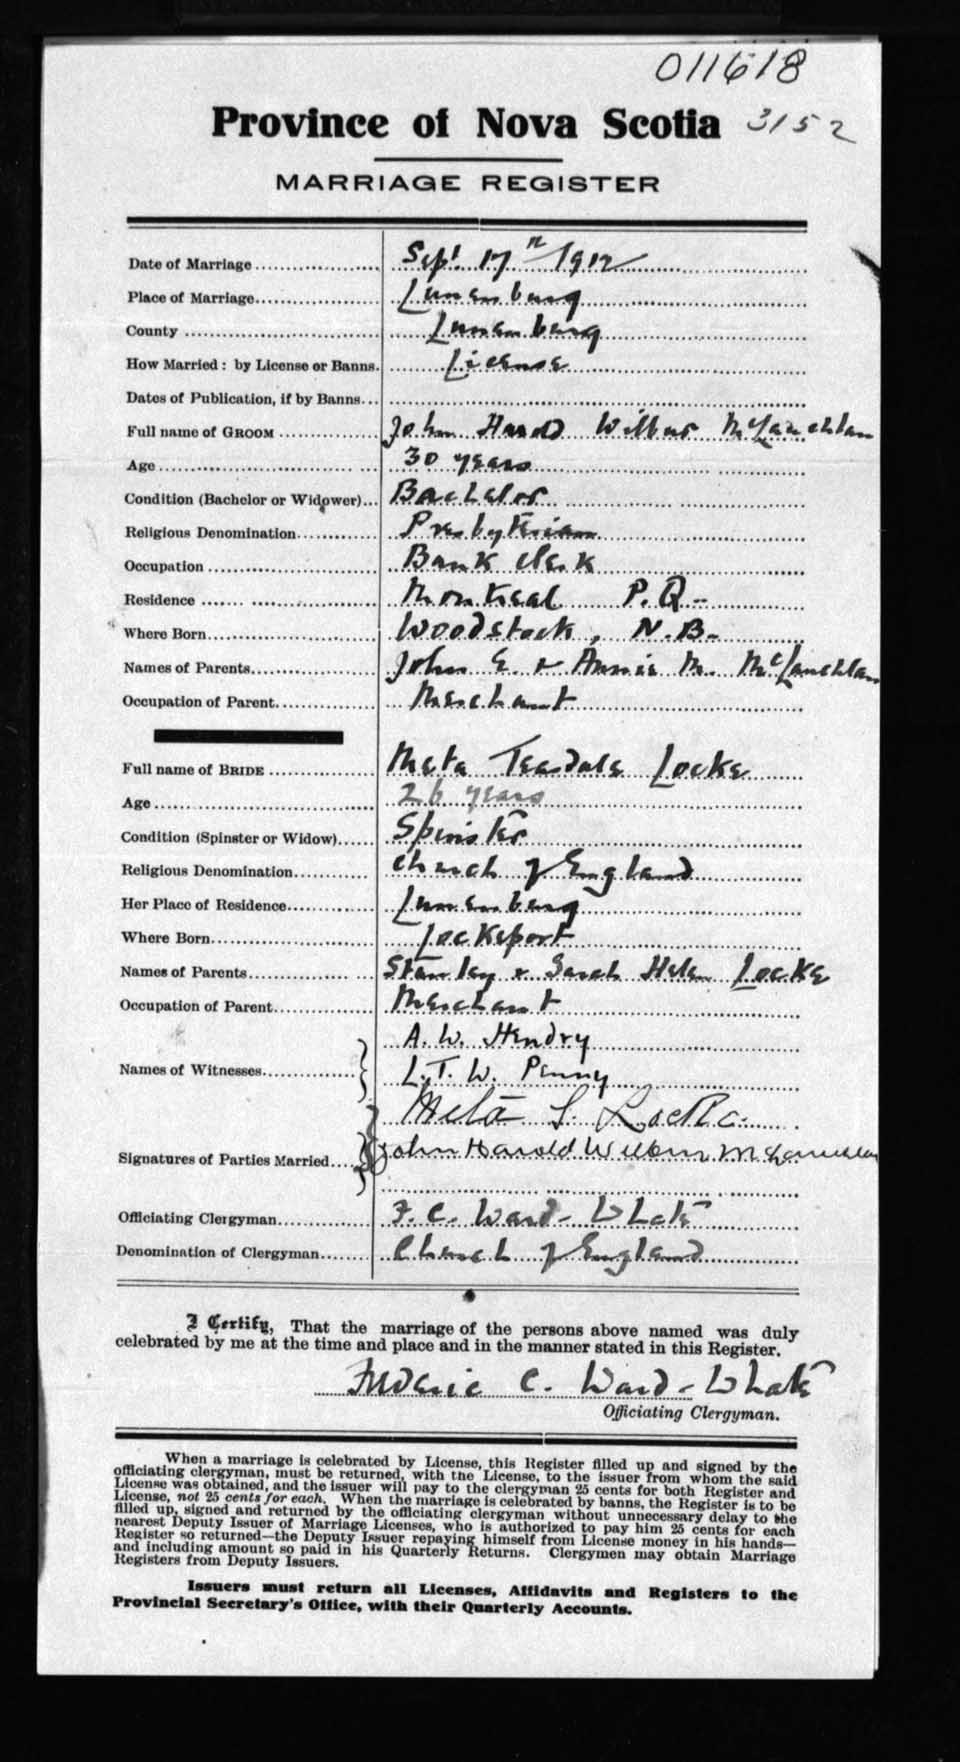 011618
Province of Nova Scotia 3152
MARRIAGE REGISTER
Date of Marriage Sept. 17th 1912
Place of Marriage Lunenburg
County Lunenburg
How Married: by License or Banns. License
Dates of Publication, if by Banns
Full name of GROOM John Harold Wilbur McLauchlan
Age 30 years
Condition (Bachelor or Widower) Bachelor
Religious Denomination Presbyterian
Occupation Bank Clerk
Residence Montreal P.Q.
Where Born Woodstock, N.B.
Names of Parents John E. & Annie M. McLauchlan
Occupation of Parent Merchant
Full name of BRIDE Meta Teasdale Locke
Age 26 years
Condition (Spinster or Widow) Spinster
Religious Denomination Church of England
Her Place of Residence Lunenburg
Where Born Lockeport
Names of Parents Stanley & Sarah Helen Locke
Occupation of Parent Merchant
A. W. Hendry
Names of Witnesses
L. T. W. Penny
Meta Locke
Signatures of Parties Married John Harold Wilbur McLauchlan
Officiating Clergyman F. C. Ward-Whate
Denomination of Clergyman Church of England
I Certify, That the marriage of the persons above named was duly
celebrated by me at the time and place and in the manner stated in this Register.
Frederic C. Ward-Whate
Officiating Clergyman.
When a marriage is celebrated by License, this Register filled up and signed by the
officiating clergyman, must be returned, with the License, to the issuer from whom the said
License was obtained, and the issuer will pay to the clergyman 25 cents for both Register and
License, not 25 cents for each. When the marriage is celebrated by banns, the Register is to be
filled up, signed and returned by the officiating clergyman without unnecessary delay to the
nearest Deputy Issuer of Marriage Licenses, who is authorized to pay him 25 cents for each
Register so returned—the Deputy Issuer repaying himself from License money in his hands—
and including amount so paid in his Quarterly Returns. Clergymen may obtain Marriage
Registers from Deputy Issuers.
Issuers must return all Licenses, Affidavits and Registers to the
Provincial Secretary's Office, with their Quarterly Accounts.